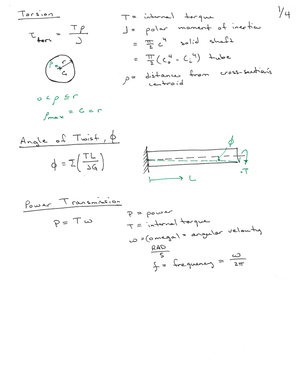 1/4
Torsion
τ_tors = Tρ / J
T = internal torque
J = polar moment of inertia
= π/2 c⁴ solid shaft
= π/2 (c_o⁴ - c_i⁴) tube
ρ = distance from cross-section's centroid
ρ r
C
0 < ρ ≤ r
ρ_max = c = r
Angle of Twist, ϕ
ϕ = Σ(TL / JG)
ϕ
T
L
Power Transmission
P = Tω
P = power
T = internal torque
ω = (omega) = angular velocity
RAD/S
f = frequency = ω/2π